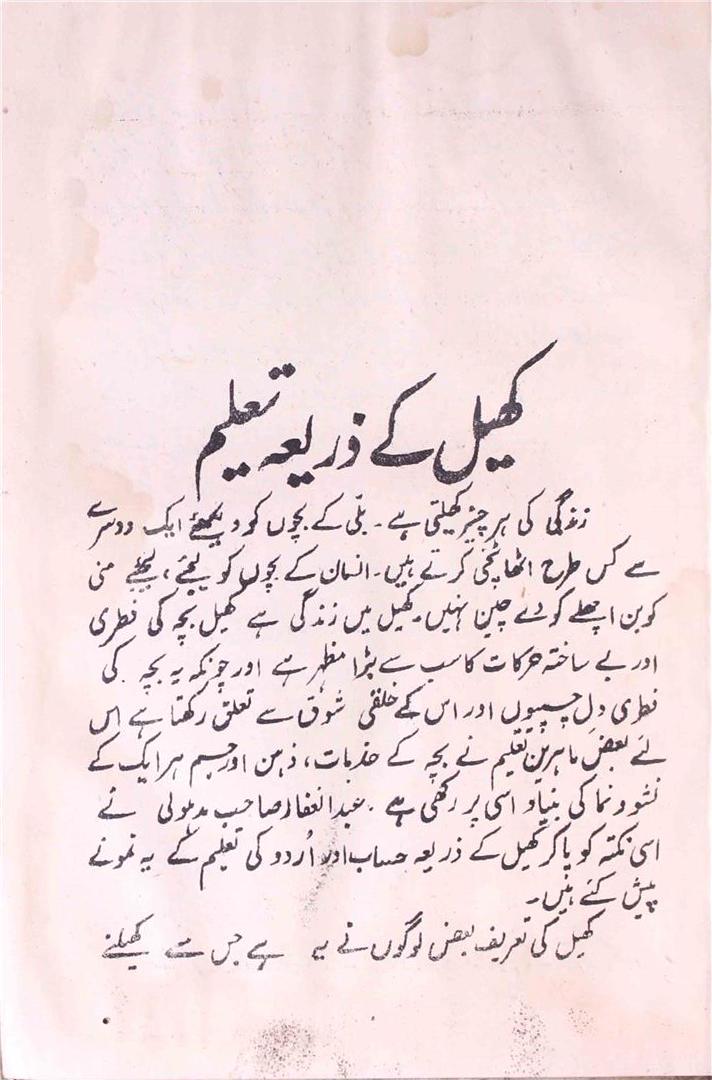 کھیل کے ذریعہ تعلیم
زندگی کی ہر چیز کھیلتی ہے۔ بلّی کے بچوں کو دیکھئے ایک دوسرے
سے کس طرح اٹھا پٹخی کرتے ہیں۔ انسان کے بچوں کو لیجئے،
کو بن اچھلے کودے چین نہیں۔ کھیل میں زندگی ہے کھیل بچہ کی فطری
اور بے ساختہ حرکات کا سب سے بڑا مظہر ہے اور چونکہ یہ بچہ کی
فطری دل چسپیوں اور اس کے خلقی شوق سے تعلق رکھتا ہے اس
لئے بعض ماہرین تعلیم نے بچہ کے جذبات، ذہن اور جسم ہر ایک کے
نشوونما کی بنیاد اسی پر رکھی ہے۔ عبدالغفار صاحب مدہولی نے
اسی نکتہ کو پا کر کھیل کے ذریعہ حساب اور اُردو کی تعلیم کے یہ نمونے
پیش کئے ہیں۔
کھیل کی تعریف بعض لوگوں نے یہ ہے جس سے کھیلنے